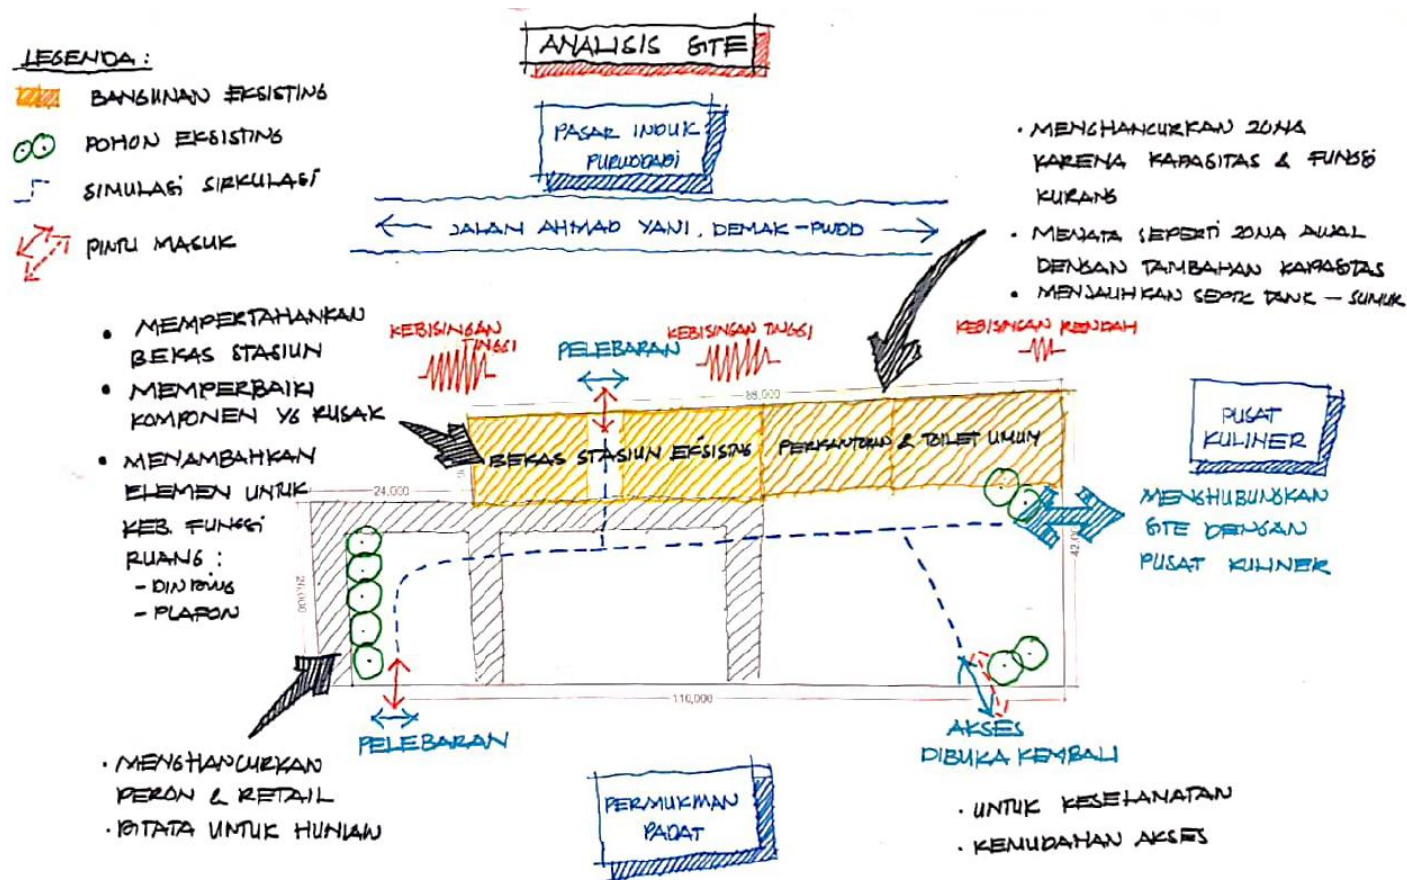 ANALISIS SITE
LEGENDA :
BANGUNAN EKSISTING
POHON EKSISTING
SIMULASI SIRKULASI
PINTU MASUK
PASAR INDUK
PURWODADI
JALAN AHMAD YANI, DEMAK-PWDD
• MENGHANCURKAN ZONA
KARENA KAPASITAS & FUNGSI
KURANG
• MENATA SEPERTI ZONA AWAL
DENGAN TAMBAHAN KAPASITAS
• MENJAUHKAN SEPTIC TANK - SUMUR
• MEMPERTAHANKAN
BEKAS STASIUN
• MEMPERBAIKI
KOMPONEN YG RUSAK
• MENAMBAHKAN
ELEMEN UNTUK
KEB. FUNGSI
RUANG :
- DINDING
- PLAFON
KEBISINGAN
TINGGI
PELEBARAN
KEBISINGAN TINGGI
KEBISINGAN RENDAH
88,000
BEKAS STASIUN EKSISTING
PERKANTORAN & TOILET UMUM
PUSAT
KULINER
MENGHUBUNGKAN
SITE DENGAN
PUSAT KULINER
24,000
42,000
110,000
PELEBARAN
AKSES
DIBUKA KEMBALI
• UNTUK KESELAMATAN
• KEMUDAHAN AKSES
• MENGHANCURKAN
PERON & RETAIL
• DITATA UNTUK HUNIAN
PERMUKMAN
PADAT